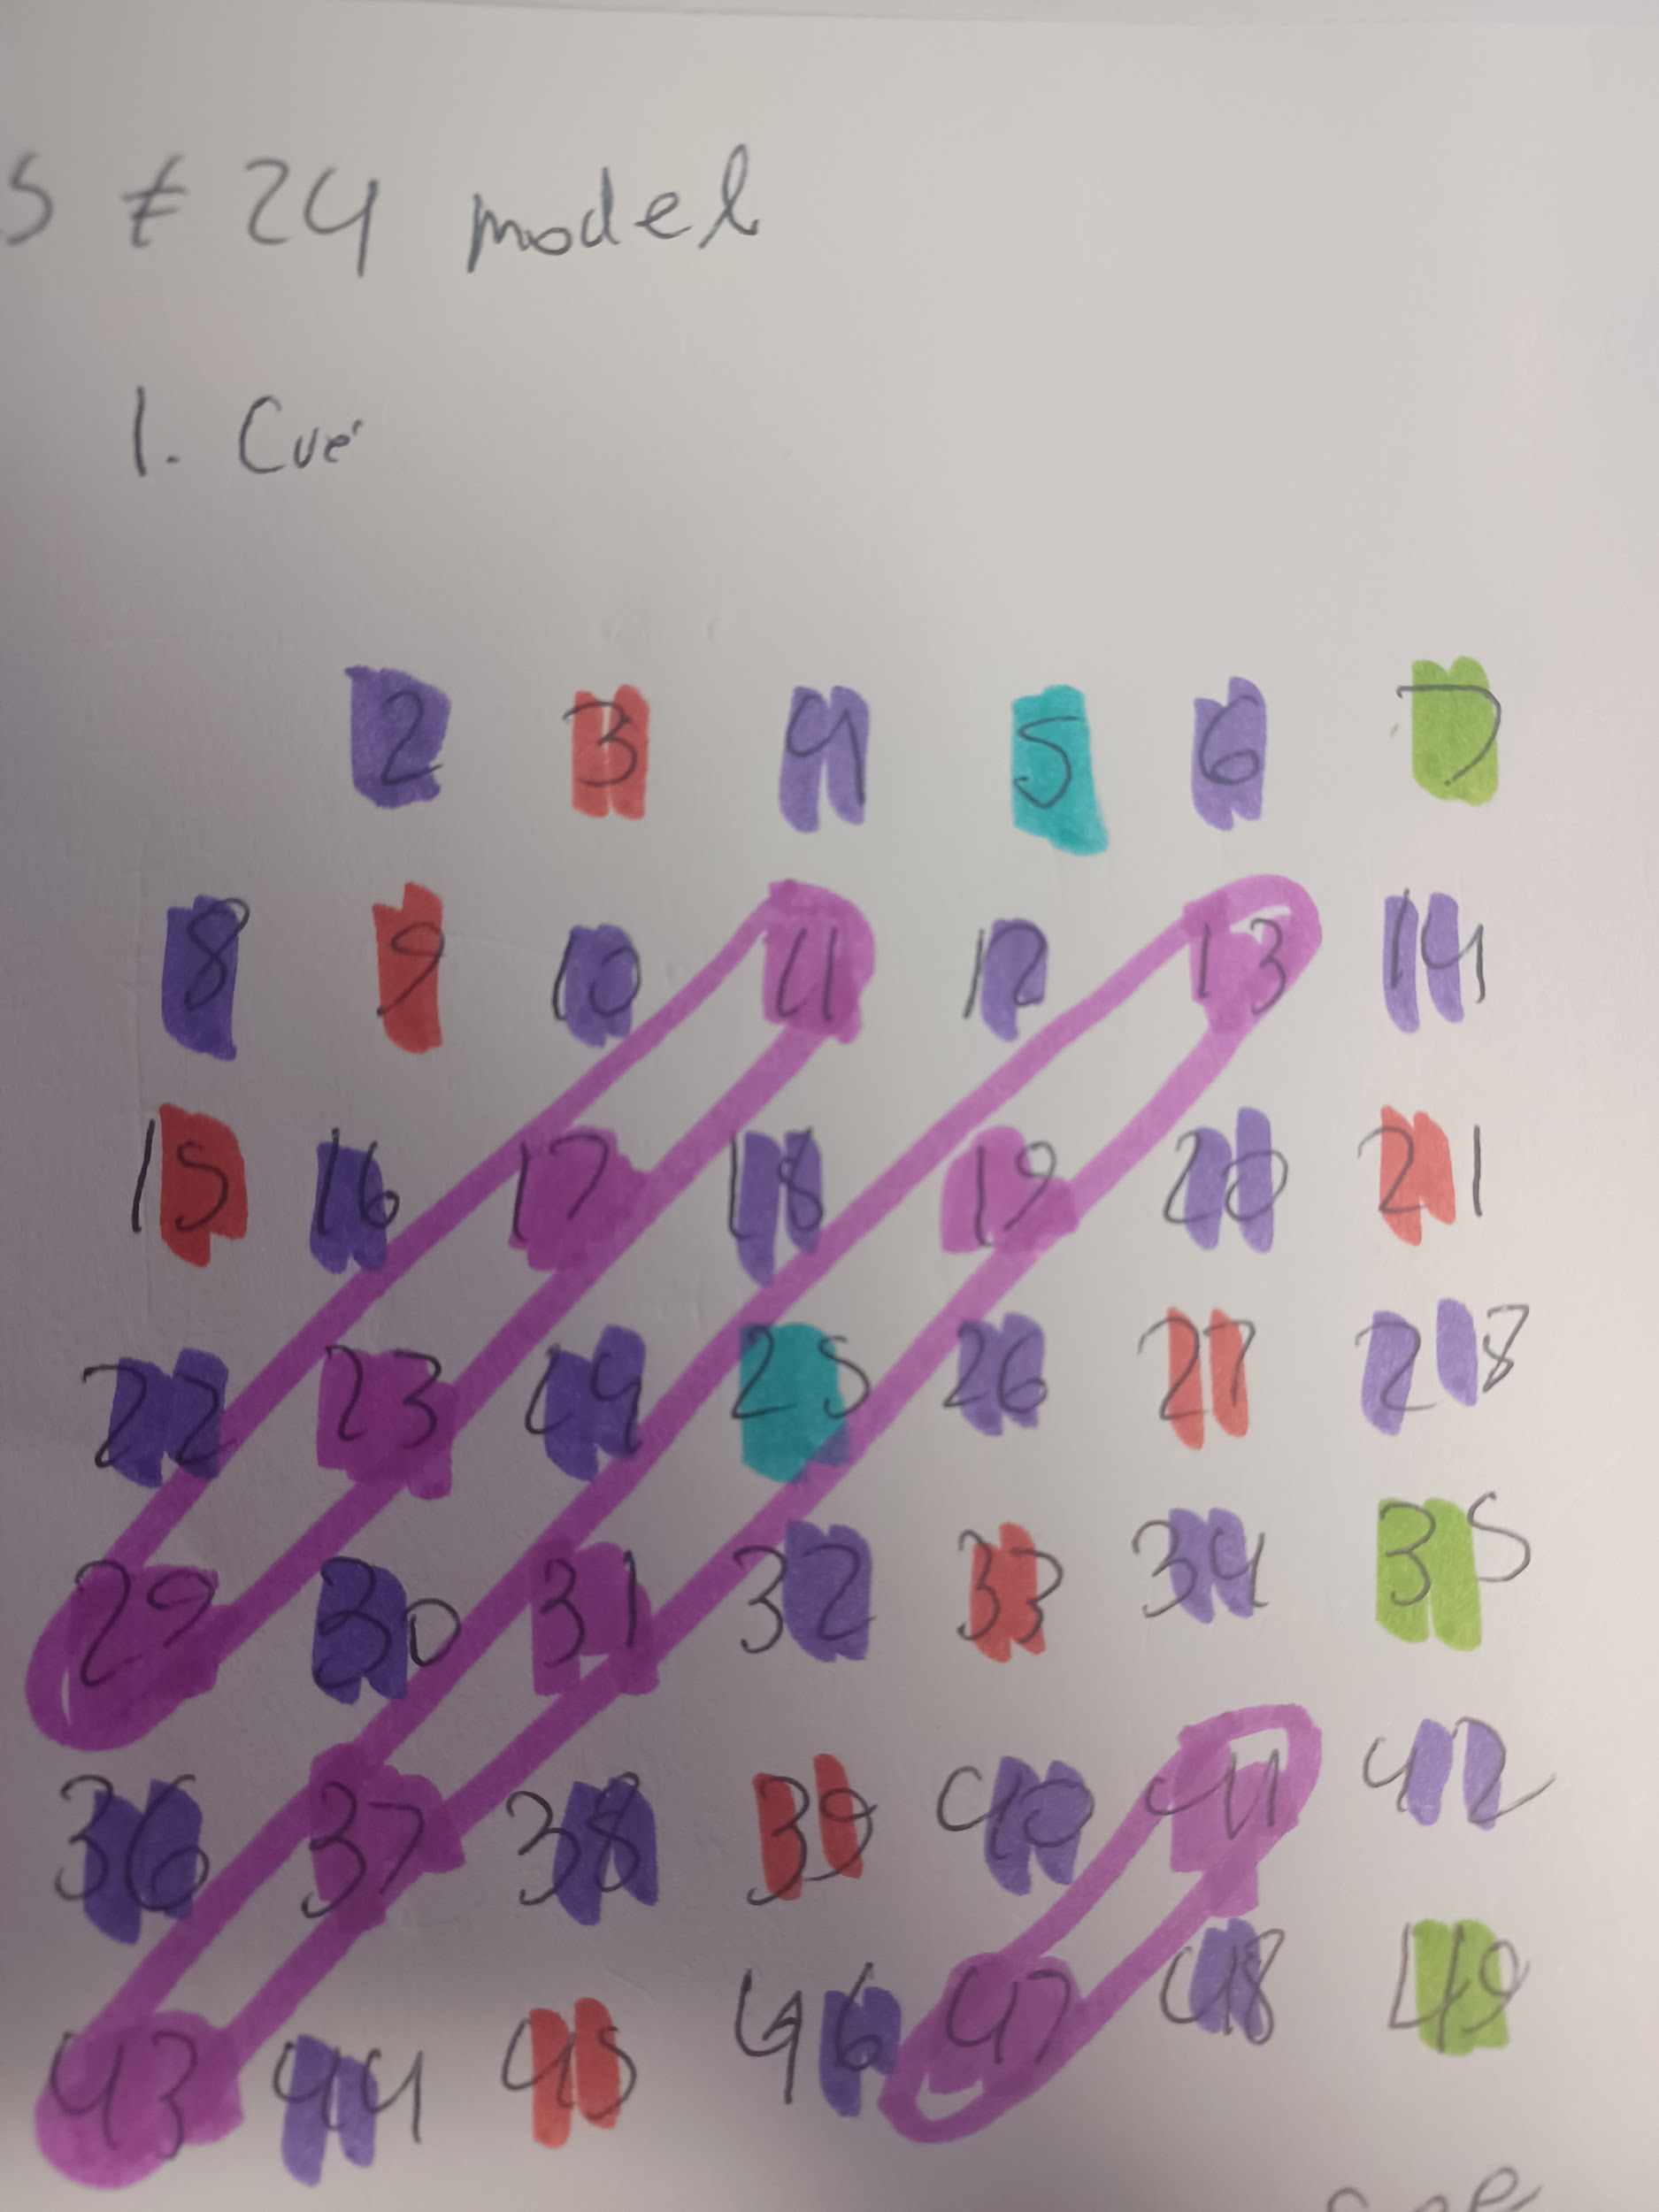 S ≠ 24 model
1. Cue
2 3 4 5 6 7
8 9 10 11 12 13 14
15 16 17 18 19 20 21
22 23 24 25 26 27 28
29 30 31 32 33 34 35
36 37 38 39 40 41 42
43 44 45 46 47 48 49